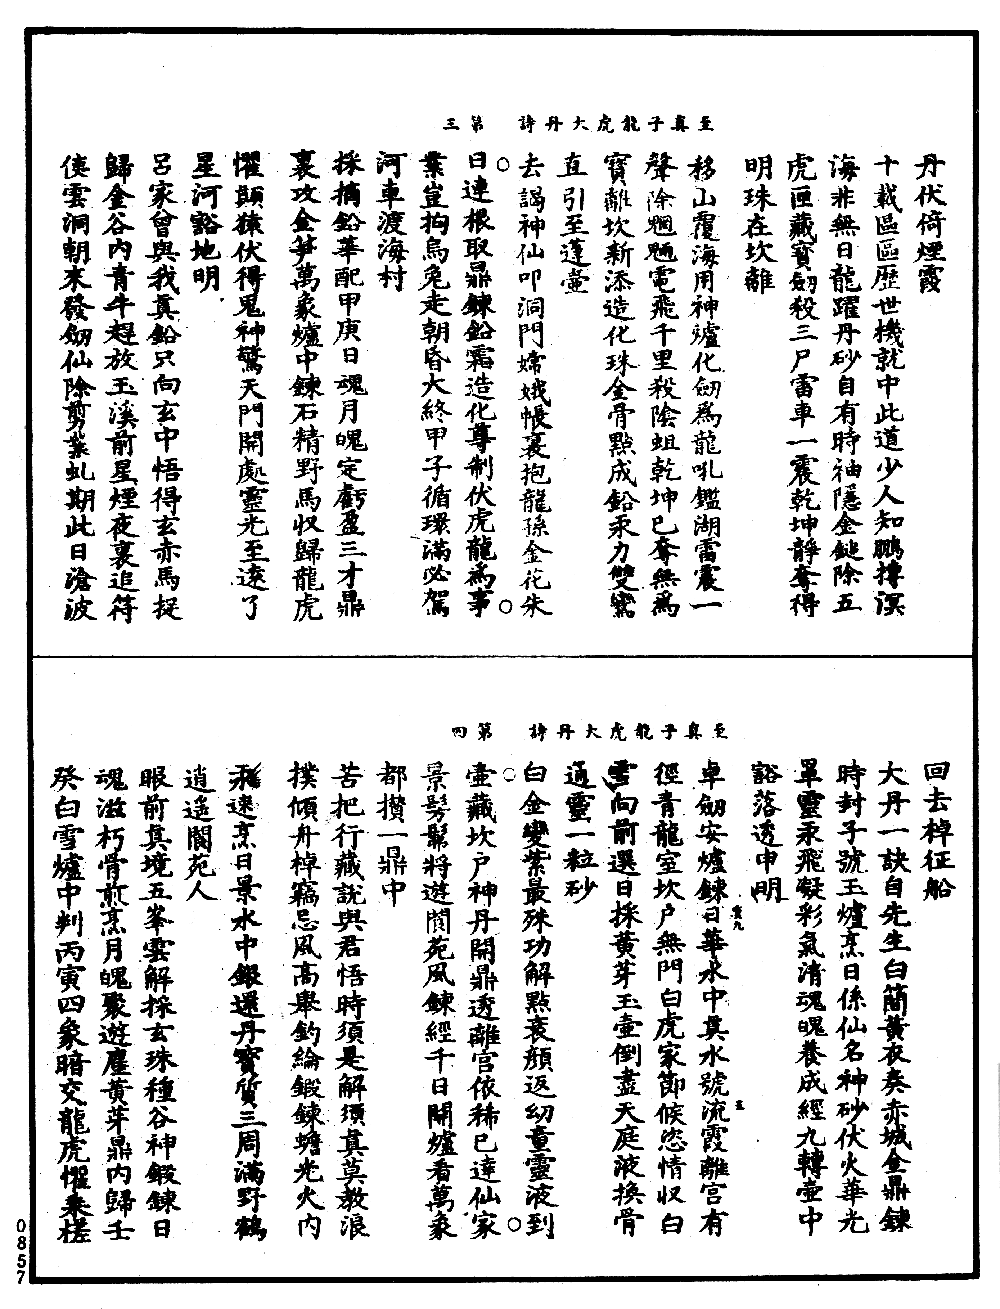 至真子龍虎大丹詩　第三
丹伏倚煙霞
十載區區歷世機就中此道少人知鵬摶溟
海非無日龍躍丹砂自有時袖隱金鎚除五
虎匣藏寶劒殺三尸雷車一震乾坤靜奪得
明珠在坎離
移山覆海用神爐化劒爲龍吼鑑湖雷震一
聲除魍魎電飛千里殺陰蛆乾坤已奪無爲
寶離坎新添造化珠金骨點成鉛汞力雙鸞
直引至蓬壷
去謁神仙叩洞門嫦娥帳裏抱龍孫金花朱
日連根取鼎鍊鉛霜造化尊制伏虎龍爲事
業豈拘烏兔走朝昏大終甲子循環滿必駕
河車渡海村
採摘鉛華配甲庚日魂月魄定虧盈三才鼎
裏攻金笋萬象爐中鍊石精野馬収歸龍虎
懼顛猿伏得鬼神驚天門開處靈光至遼了
星河豁地明
呂家曾與我真鉛只向玄中悟得玄赤馬捉
歸金谷內青牛趕放玉溪前星煙夜裏追符
使雲洞朝來發劒仙除剪業虬期此日滄波
至真子龍虎大丹詩　第四
回去棹征船
大丹一訣自先生白簡黃夜奏赤城金鼎鍊
時封子號玉爐烹日係仙名神砂伏火華光
罩靈汞飛凝彩氣清魂魄養成經九轉壷中
豁落透申明
卓劒安爐鍊日華水中真水號流霞離宮有
徑青龍室坎户無門白虎家節候恣情収白
雪向前選日採黃芽玉壷倒盡天庭液換骨
通靈一粒砂
白金變紫最殊功解點衰顔返幼童靈液到
壷藏坎户神丹開鼎透離宮依稀已達仙家
景髣髴將遊閬苑風鍊經千日開爐看萬象
都攢一鼎中
苦把行藏說與君悟時須是解須真莫教浪
撲傾舟棹竊忌風高舉釣綸鍛鍊蟾光火內
飛速烹日景水中鍛還丹寳質三周滿野鶴
逍遥閬苑人
眼前真境五峯雲解採玄珠種谷神鍛鍊日
魂滋朽骨煎烹月魄聚遊塵黃芽鼎內歸壬
癸白雪爐中判丙寅四象暗交龍虎懼乗槎
0857